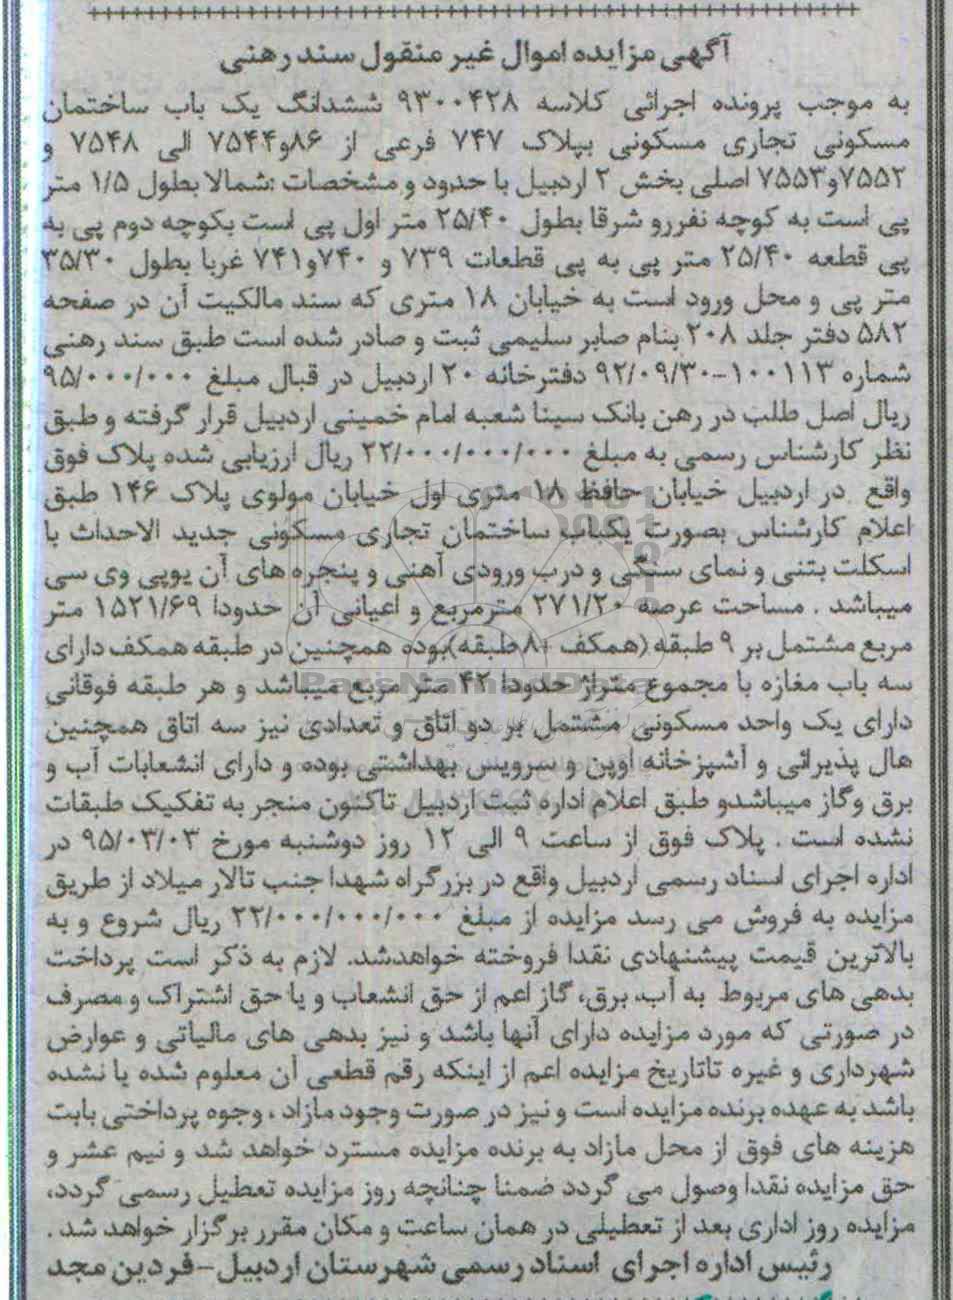 آگهی مزایده اموال غیر منقول سند رهنی
به موجب پرونده اجرائی کلاسه ۹۳۰۰۴۲۸ ششدانگ یک باب ساختمان
مسکونی تجاری مسکونی بپلاک ۷۴۷ فرعی از ۸۶و۷۵۴۴ الی ۷۵۴۸ و
۷۵۵۲و۷۵۵۳ اصلی بخش ۲ اردبیل با حدود و مشخصات :شمالا بطول ۱/۵ متر
پی است به کوچه نفررو شرقا بطول ۲۵/۴۰ متر اول پی است بکوچه دوم پی به
پی قطعه ۲۵/۴۰ متر پی به پی قطعات ۷۳۹ و ۷۴۰و۷۴۱ غربا بطول ۳۵/۳۰
متر پی و محل ورود است به خیابان ۱۸ متری که سند مالکیت آن در صفحه
۵۸۲ دفتر جلد ۲۰۸ بنام صابر سلیمی ثبت و صادر شده است طبق سند رهنی
شماره ۱۰۰۱۱۳-۹۲/۰۹/۳۰ دفترخانه ۲۰ اردبیل در قبال مبلغ ۹۵/۰۰۰/۰۰۰
ریال اصل طلب در رهن بانک سینا شعبه امام خمینی اردبیل قرار گرفته و طبق
نظر کارشناس رسمی به مبلغ ۲۲/۰۰۰/۰۰۰/۰۰۰ ریال ارزیابی شده پلاک فوق
واقع در اردبیل خیابان حافظ ۱۸ متری اول خیابان مولوی پلاک ۱۴۶ طبق
اعلام کارشناس بصورت یکباب ساختمان تجاری مسکونی جدید الاحداث با
اسکلت بتنی و نمای سنگی و درب ورودی آهنی و پنجره های آن یوپی وی سی
میباشد . مساحت عرصه ۲۷۱/۲۰ مترمربع و اعیانی آن حدودا ۱۵۲۱/۶۹ متر
مربع مشتمل بر ۹ طبقه (همکف +۸طبقه)بوده همچنین در طبقه همکف دارای
سه باب مغازه با مجموع متراژ حدودا ۴۲ متر مربع میباشد و هر طبقه فوقانی
دارای یک واحد مسکونی مشتمل بر دو اتاق و تعدادی نیز سه اتاق همچنین
هال پذیرائی و آشپزخانه اوپن و سرویس بهداشتی بوده و دارای انشعابات آب و
برق وگاز میباشدو طبق اعلام اداره ثبت اردبیل تاکنون منجر به تفکیک طبقات
نشده است . پلاک فوق از ساعت ۹ الی ۱۲ روز دوشنبه مورخ ۹۵/۰۳/۰۳ در
اداره اجرای اسناد رسمی اردبیل واقع در بزرگراه شهدا جنب تالار میلاد از طریق
مزایده به فروش می رسد مزایده از مبلغ ۲۲/۰۰۰/۰۰۰/۰۰۰ ریال شروع و به
بالاترین قیمت پیشنهادی نقدا فروخته خواهدشد. لازم به ذکر است پرداخت
بدهی های مربوط به آب، برق، گاز اعم از حق انشعاب و یا حق اشتراک و مصرف
در صورتی که مورد مزایده دارای آنها باشد و نیز بدهی های مالیاتی و عوارض
شهرداری و غیره تاتاریخ مزایده اعم از اینکه رقم قطعی آن معلوم شده یا نشده
باشد به عهده برنده مزایده است و نیز در صورت وجود مازاد ، وجوه پرداختی بابت
هزینه های فوق از محل مازاد به برنده مزایده مسترد خواهد شد و نیم عشر و
حق مزایده نقدا وصول می گردد ضمنا چنانچه روز مزایده تعطیل رسمی گردد،
مزایده روز اداری بعد از تعطیلی در همان ساعت و مکان مقرر برگزار خواهد شد .
رئیس اداره اجرای اسناد رسمی شهرستان اردبیل-فردین مجد
ParsNamadData